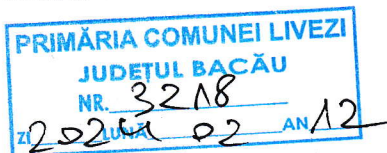 PRIMĂRIA COMUNEI LIVEZI
JUDEȚUL BACĂU
NR. 3218
ZI 2024 LUNĂ 02 AN 12